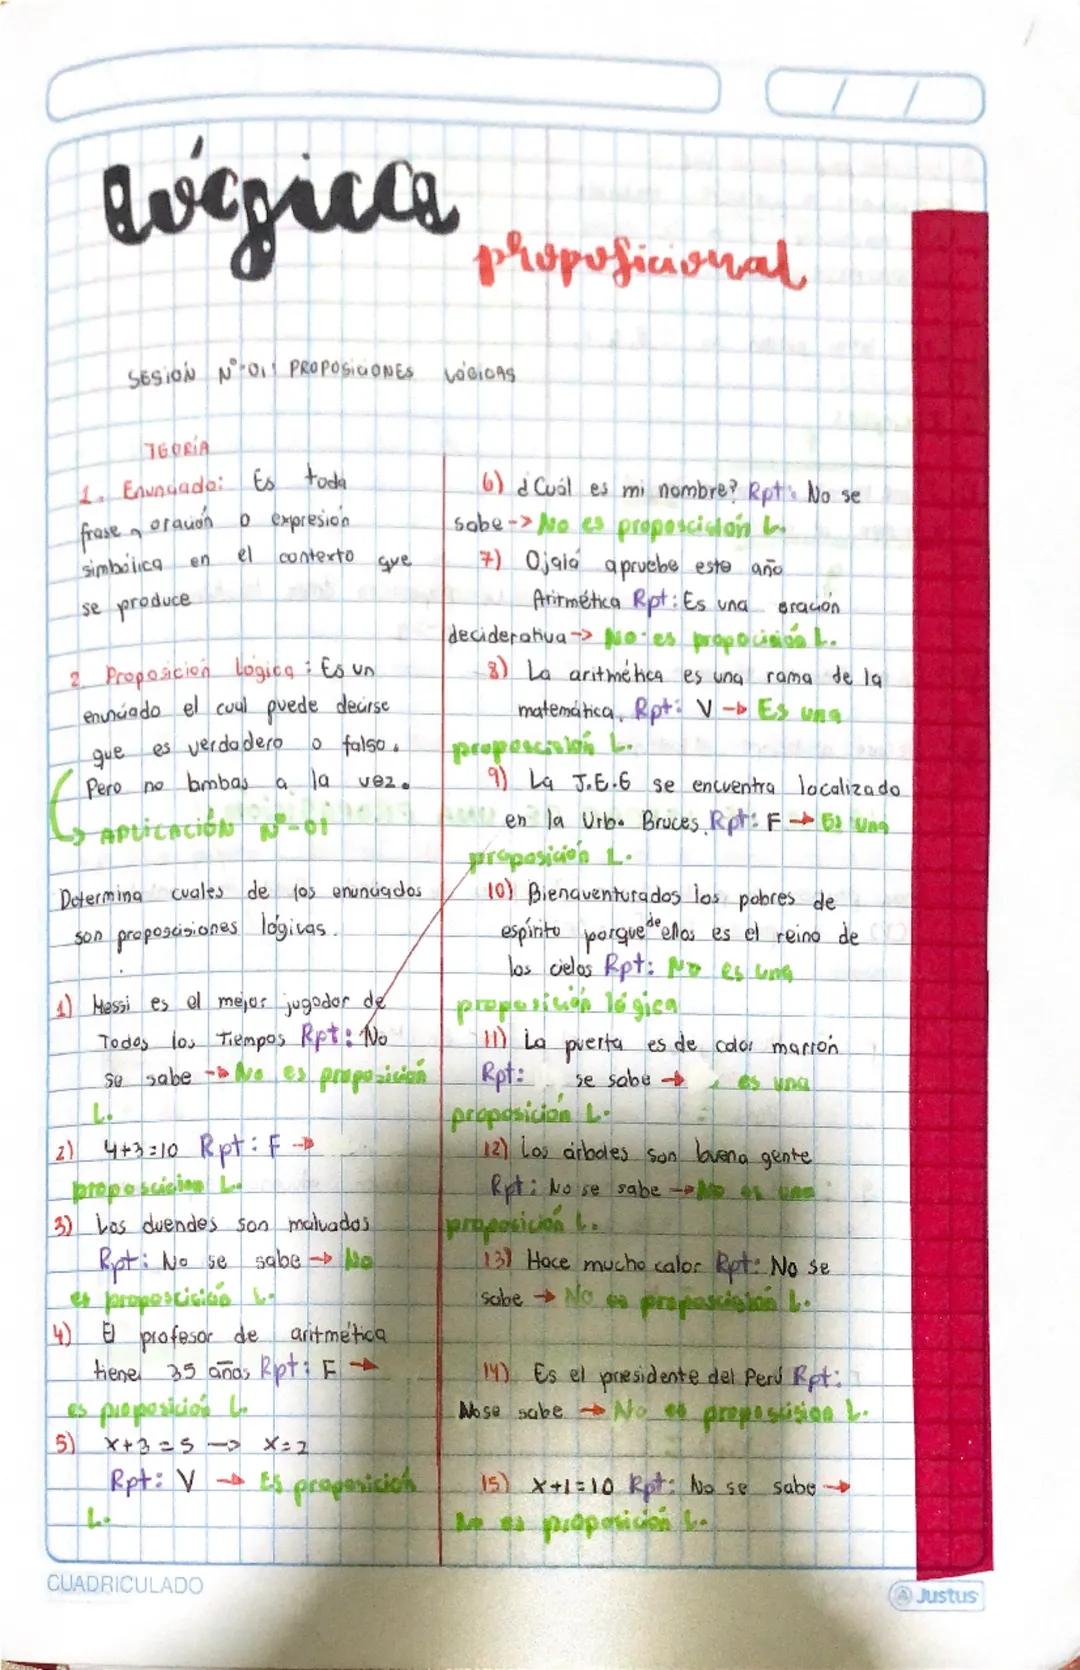 Lógica
proposicional
SESIÓN N°-01: PROPOSICIONES LÓGICAS
TEORÍA
1. Enunciado: Es toda
frase, oración o expresión
simbólica en el contexto que
se produce
2. Proposición Lógica: Es un
enunciado el cual puede decirse
que es verdadero o falso.
Pero no ambas a la vez.
APLICACIÓN N°-01
Determina cuales de los enunciados
son proposcisiones lógicas.
1) Messi es el mejor jugador de
Todos los Tiempos Rpt: No
se sabe -> No es proposición
L.
2) 4+3=10 Rpt: F ->
proposcision L.
3) Los duendes son malvados
Rpt: No se sabe -> No
es proposcición L.
4) El profesor de aritmética
tiene 35 años Rpt: F ->
es proposición L.
5) x+3=5 -> x=2
Rpt: V -> Es proposición
L.
6) ¿Cuál es mi nombre? Rpt: No se
sabe -> No es proposcición L.
7) Ojalá apruebe este año
Aritmética Rpt: Es una oración
deciderativa -> No es propocisión L.
8) La aritmética es una rama de la
matemática. Rpt: V -> Es una
proposcisión L.
9) La J.E.G se encuentra localizado
en la Urb. Bruces Rpt: F -> Es una
proposición L.
10) Bienaventurados los pobres de
espíritu porque de ellos es el reino de
los cielos Rpt: No es una
proposición lógica
11) La puerta es de color marrón
Rpt: se sabe -> es una
proposición L.
12) Los árboles son buena gente
Rpt: No se sabe -> No es una
proposición L.
13) Hace mucho calor Rpt: No se
sabe -> No es proposcisión L.
14) Es el presidente del Perú Rpt:
No se sabe -> No es proposcision L.
15) x+1=10 Rpt: No se sabe ->
No es proposición L.
CUADRICULADO
Justus